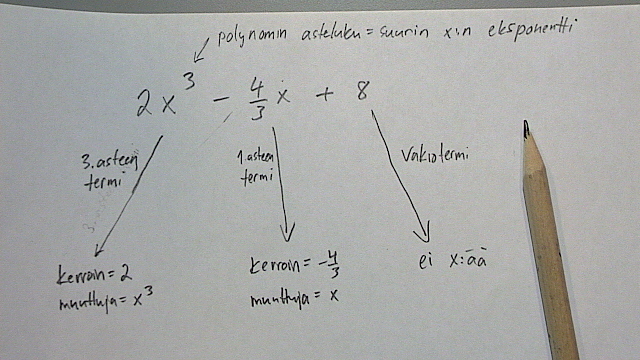 polynomin asteluku = suurin x:n eksponentti
2x³ - 4/3 x + 8
3. asteen
termi
1. asteen
termi
Vakiotermi
kerroin = 2
muuttuja = x³
kerroin = -4/3
muuttuja = x
ei x:ää